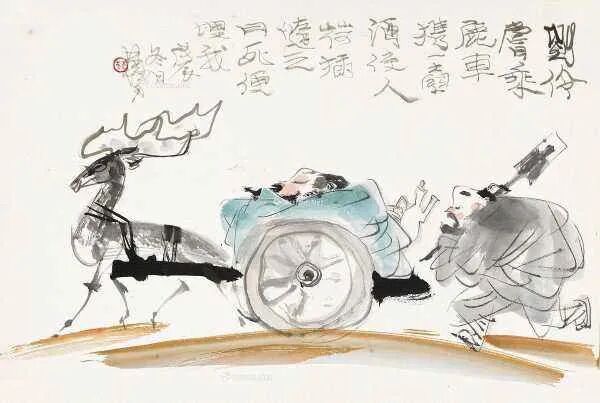 劉伶
嘗乘
鹿車
攜一壺
酒使人
荷插
隨之
曰死便
埋我
冬日